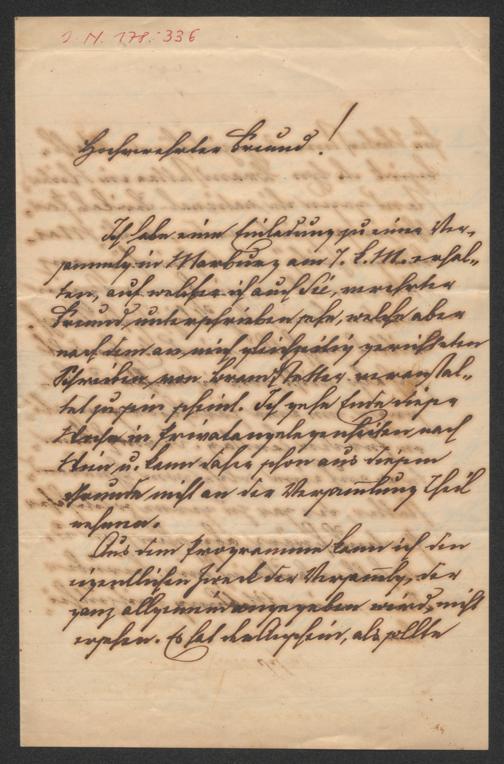 J. N. 178.336
Hochverehrter Freund!
Ich habe eine Einladung zu einer Ver-
sammlg in Marburg am 7. d. M. erhal-
ten, auf welcher ich auch Sie, verehrter
Freund, unterschrieben sehe, welche aber
nach dem an mich gleichzeitig gerichteten
Schreiben von Brandstetter veranstal-
tet zu sein scheint. Ich gehe Ende dieser
Woche in Privatangelegenheiten nach
Wien u. kann daher schon aus diesem
Grunde nicht an der Versammlung Theil
nehmen.
Aus dem Programme kann ich den
eigentlichen Zweck der Versammlg, der
ganz allgemein angegeben wird, nicht
ersehen. Es hat den Anschein, als sollte